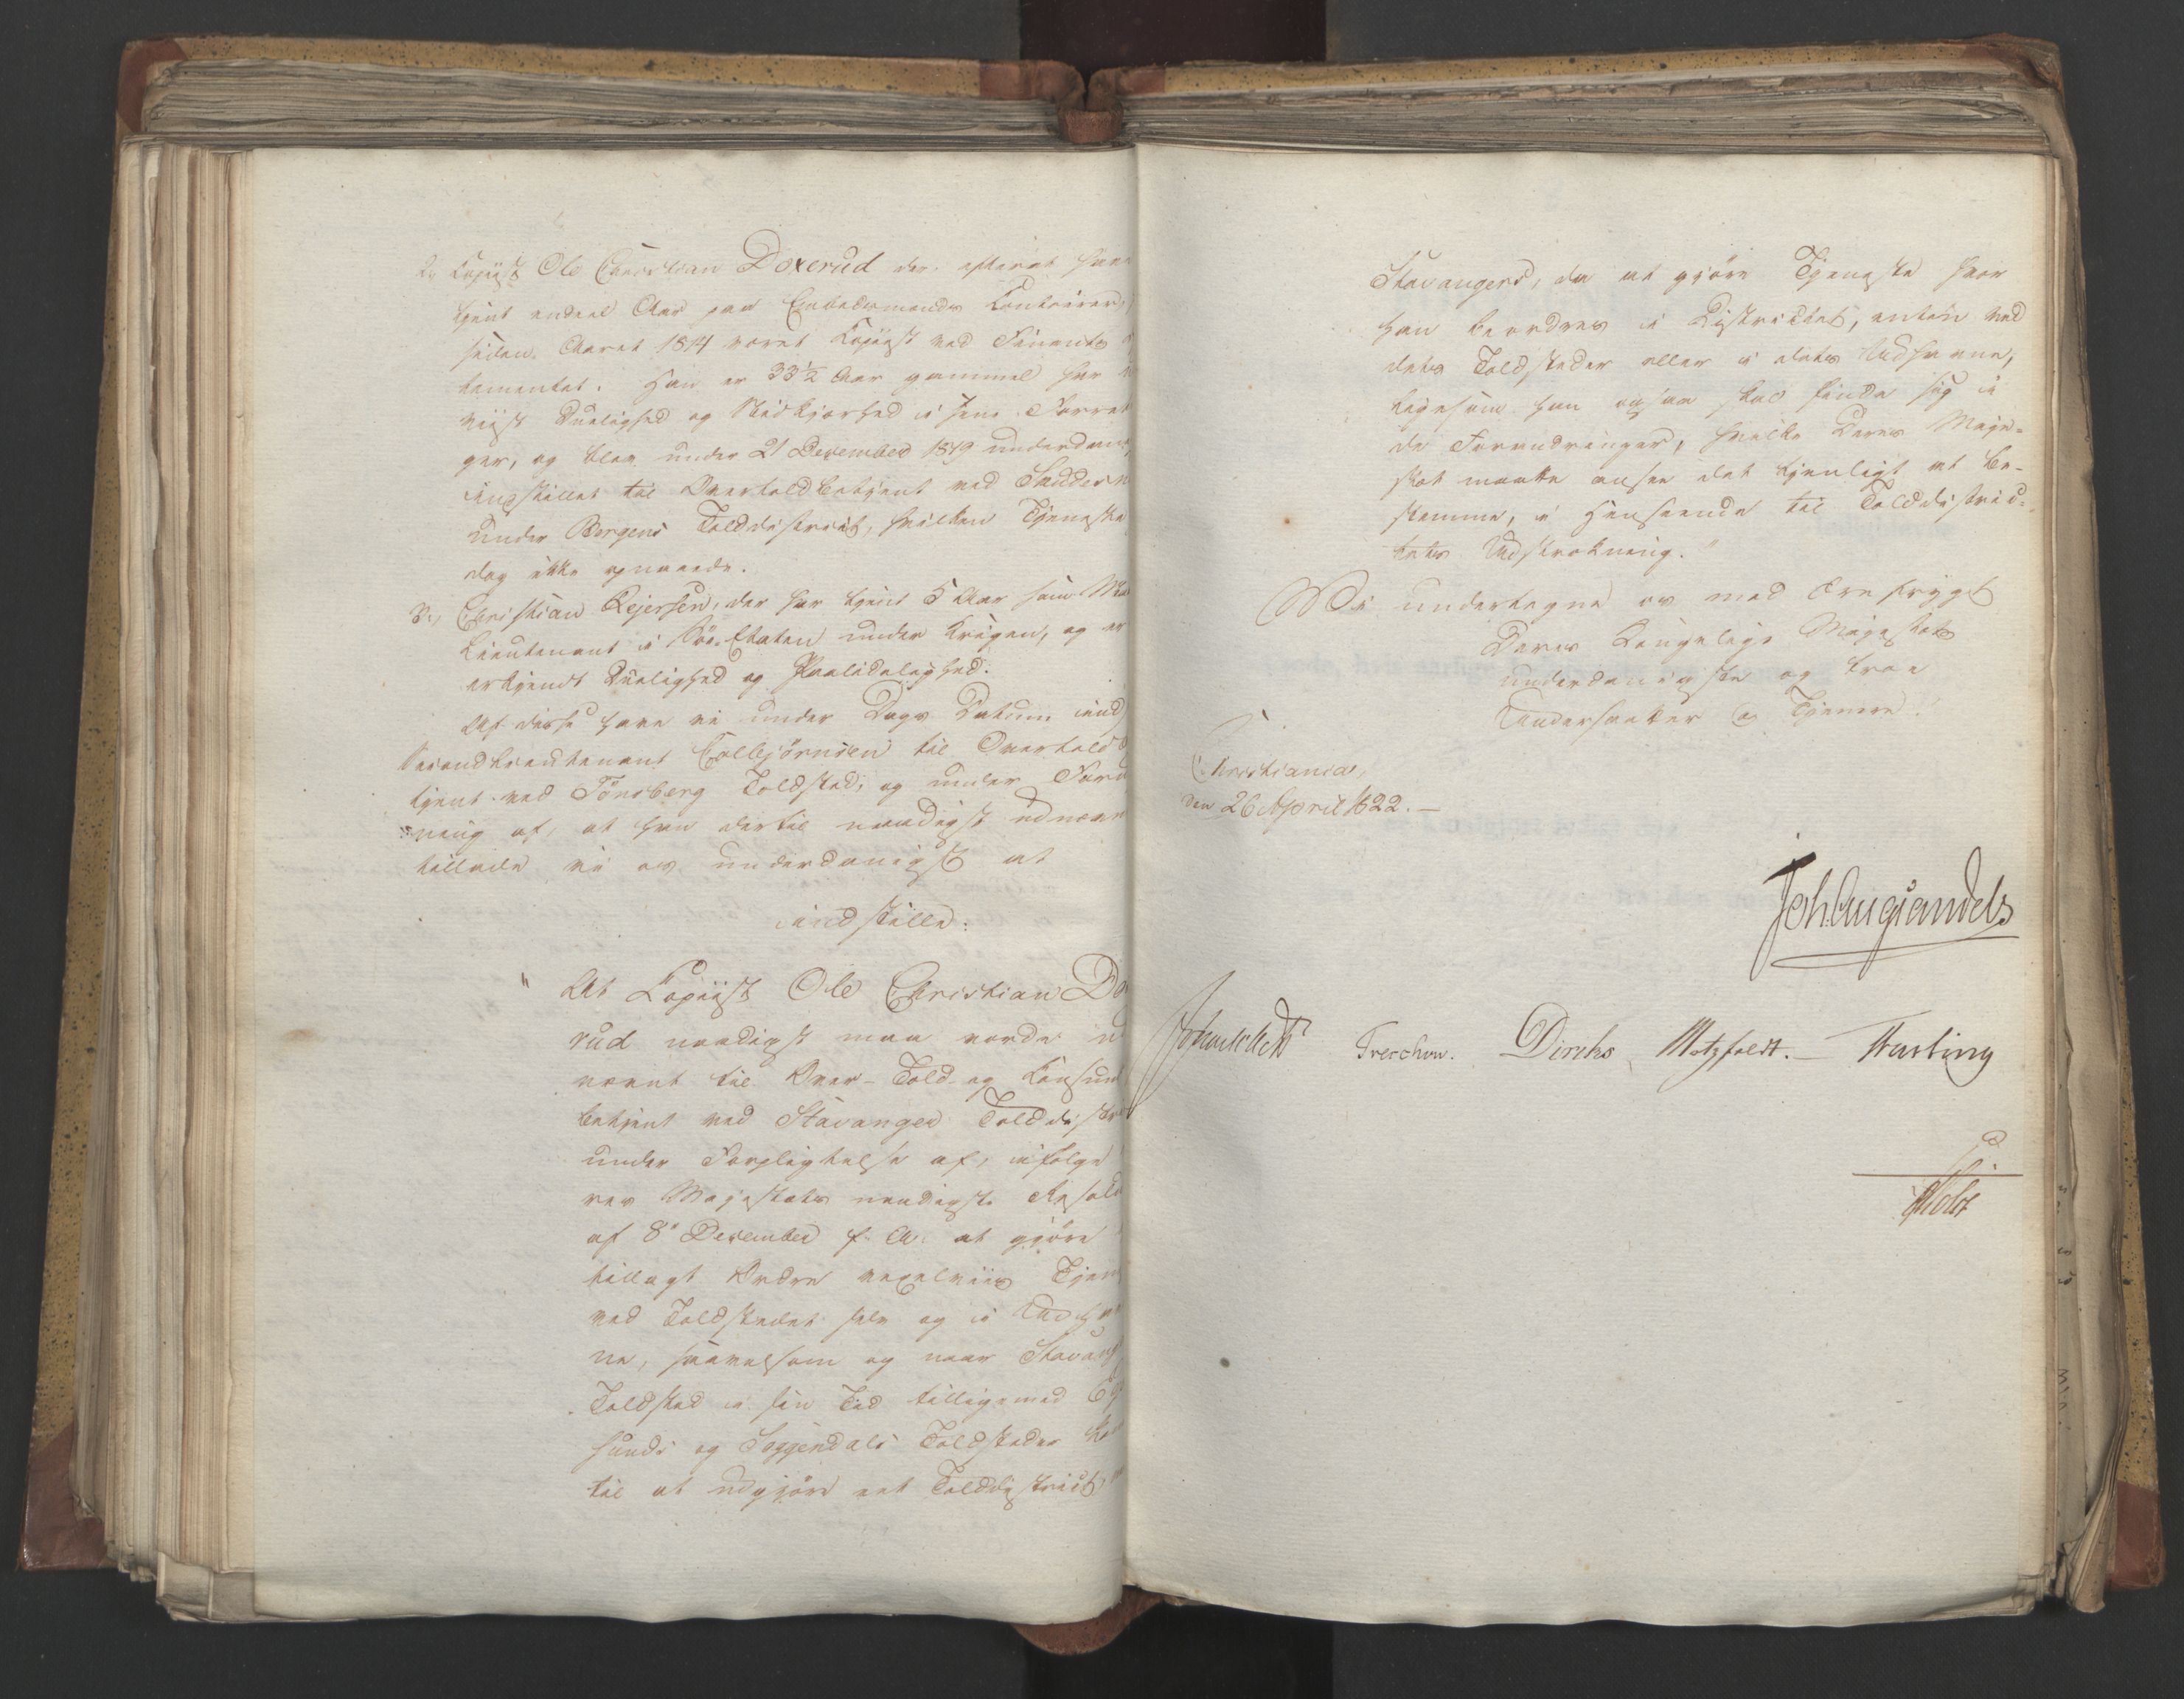 2. Copiist Ole Christian Doxerud der efterat have
tjent endeel Aar paa Embedsmænds Contoirer,
siden Aaret 1814 været Copiist ved Finants
tementet. Han er 33½ Aar gammel har
viist Duelighed og Stadighed i sine Forret
ger, og blev under 21 December 1819 underdanig
indstillet til Overtoldbetjent ved
under Bergens Tolddistrict, hvilken Tjeneste
dog ikke opnaaede.
3., Christian Rejersen, der har tjent 5 Aar som
Lieutenant i Søe-Etaten under Krigen, og er
erkjendt Duelighed og Paalidelighed.
Af disse have vi under Dags Datum ind
Secondlieutenant Colbjørnsen til Overtold
tjent ved Tönsberg Toldsted, og under Foru
ning af, at han dertil naadigst udnævn
tillade vi os underdanigst at
indstille:
" At Copiist Ole Christian Do
rud naadigst maa vorde u
nævnt til Over-Told- og Consum
betjent ved Stavanger Tolddistr
under Forpligtelse af, ifølge
res Majestæts naadigste Resolu
af 8de December f. A. at gjøre
tillagt Andre vexelviis Tjen
ved Toldstedet selv og i Udhav
ne, saavelsom og naar Stavang
Toldsted i sin Tid tilligemed Eg
sunds og Soggendals Toldsteder
til at udgjøre eet Tolddistrict
Stavangers, da at gjøre Tjeneste hvor
han beordres i Districtet, enten ved
dets Toldsteder eller i dets Udhavne,
ligesom han ogsaa skal finde sig i
de Forandringer, hvilke Deres Maje-
stæt maatte ansee det tjenligt at be-
stemme, i Henseende til Tolddistric-
tets Udstrækning."
Vi undertegne os med Ærefrygt
Deres Kongelige Majestæts
underdanigste og troe
Undersaatter og Tjenere.
Christiania,
den 26 April 1822.—
Joh. Aug Sandels
Treschow. Diriks Motzfeldt.— Fasting
Holst